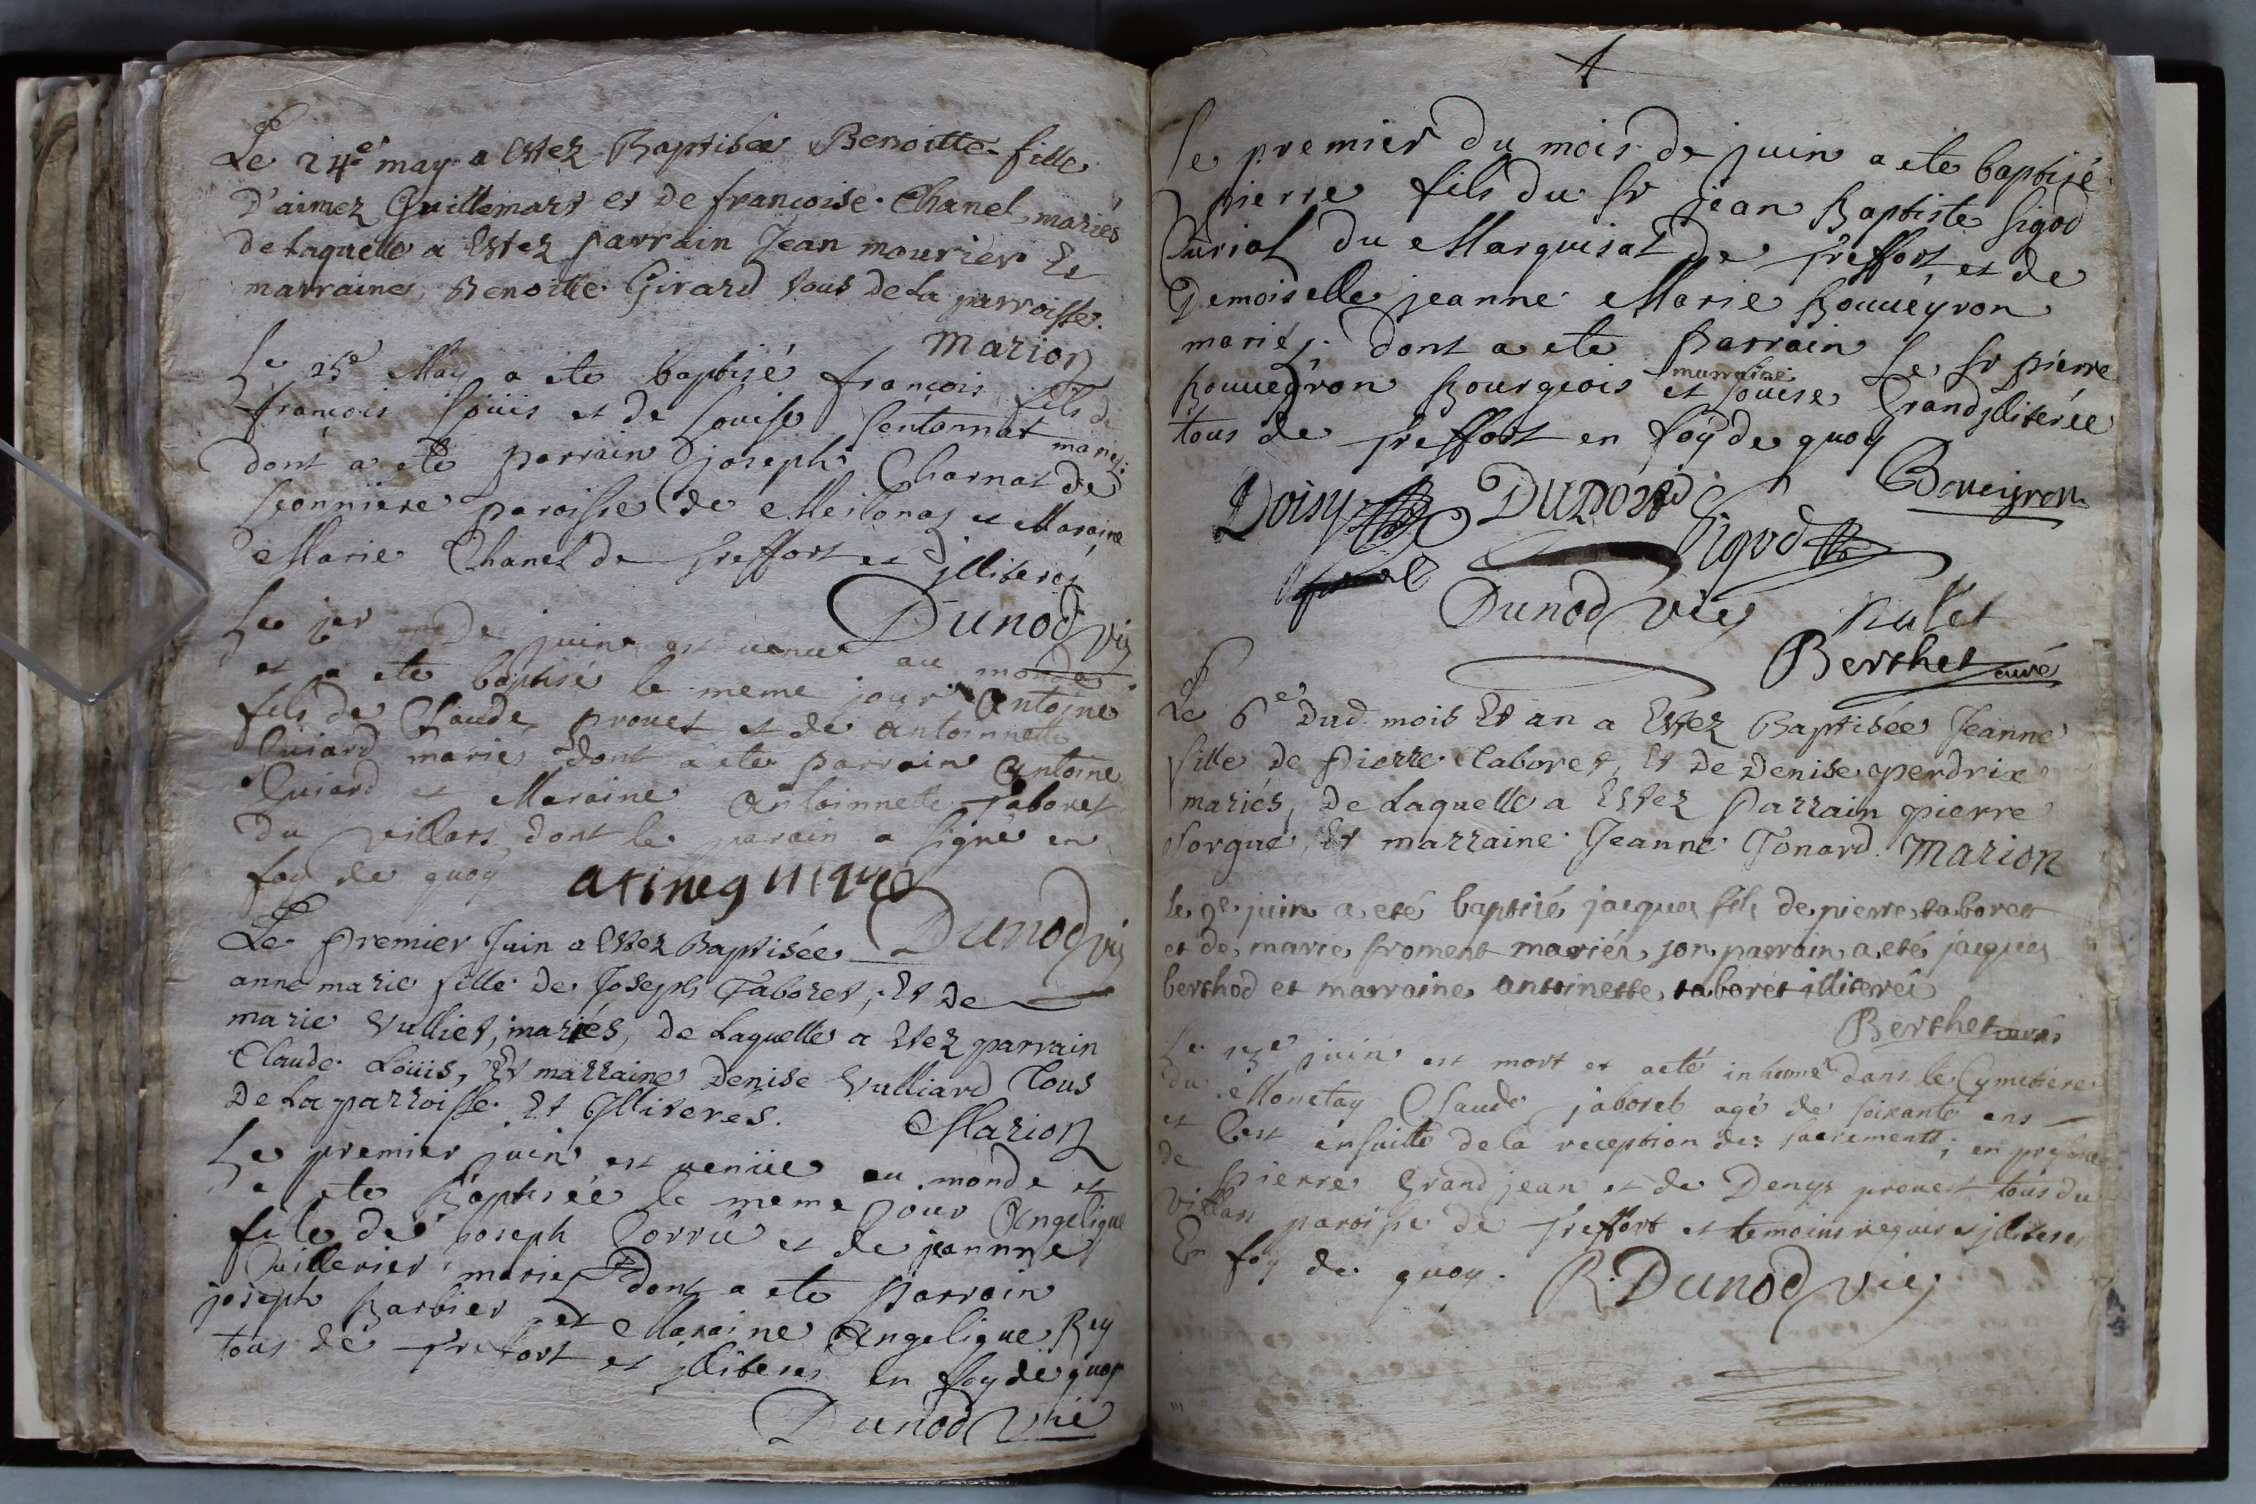 Le 24e may a Estez Baptisée Benoitte fille
D'aimez Guillemart et de françoise Chanel, mariés
de Laquelle a Estez parrain Jean mourier Et
marraine, Benoitte Girard tous de La parroisse.
Marion
Le 25e May a ete baptisé françois fils de
françois Loüis et de Louise Sentonnat mariés
dont a ete parrain joseph Charnat de
paroisse de Meilonas et Maraine
Marie Chanel de Treffort et jlliterés
Dunod vic
Le jer de juin est venu au monde
et a ete baptisé le meme jour Antoine
fils de Claude prouet et de antoinnette
Guiard mariés dont a ete parrain Antoine
Guiard et Maraine Antoinnette Taboret
du villars dont le parain a signé en
foy de quoy
Dunod vic
Le premier Juin a Estez Baptisée
anne marie fille de Joseph Taboret, Et de
marie Vulliet, mariés, de Laquelle a Estez parrain
Claude Loüis, Et marraine Denise Vulliard Tous
De La parroisse Et Jlliteres.
Marion
Le premier juin est venüe au monde et
a ete Baptisée le meme jour Angelique
file de joseph Corrü et de jeannne
Cuillerier mariés dont a ete parrain
joseph Barbier et Maraine Angelique Rey
tous de Treffort et jlliteres en foy de quoy
Dunod vic
Le premier du mois de juin a ete baptisé
pierre fils du Sr jean Baptiste Sigod
Curial du Marquisat de Treffort, et de
Demoiselle jeanne Marie Bouueyron
mariés; dont a ete parrain Le Sr pierre
Bouueyron Bourgeois et marraine Louise Grand jlliterée
tous de Treffort en foy de quoy
Doisy Dunord Boveyron
Sigod
Dunod vic
Berthet curé
Le 6e Dud. mois Et an a Estez Baptisée Jeanne
fille de Pierre Taboret, Et De Denise perdrix
mariés, de Laquelle a Estez Parrain pierre
Sorgue, Et marraine Jeanne Tonard. Marion
le 9e juin a eté baptisé jacques fils de pierre taboret
et de marie froment mariés, son parrain a eté jacques
berthod et marraine antoinette taboret illiterés
Berthet curé
Le 13e juin est mort et a eté inhumé dans le Cymetiere
du Monetay Claude jaboret agé de soixante ans
et C'est ensuitte de la reception des sacrements; en presence
de pierre Grand jean et de Denys prouet tous du
villars paroisse de Treffort et temoins requis et jlliteres
En foy de quoy. R. Dunod vic